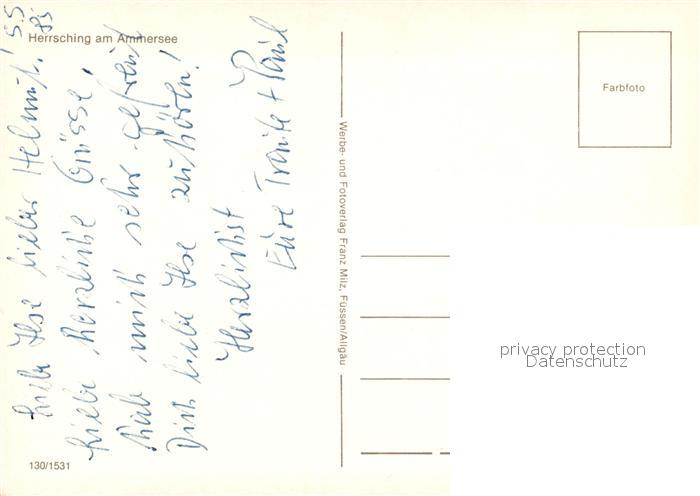 Herrsching am Ammersee
5.5.
85
Liebe Ilse lieber Helmut!
Liebe herzliche Grüsse,
hab mich sehr gefreut
Dich liebe Ilse zu hören!
Herzlichst
Eure Traute + Paul
130/1531
Werbe- und Fotoverlag Franz Milz, Füssen/Allgäu
Farbfoto
privacy protection
Datenschutz